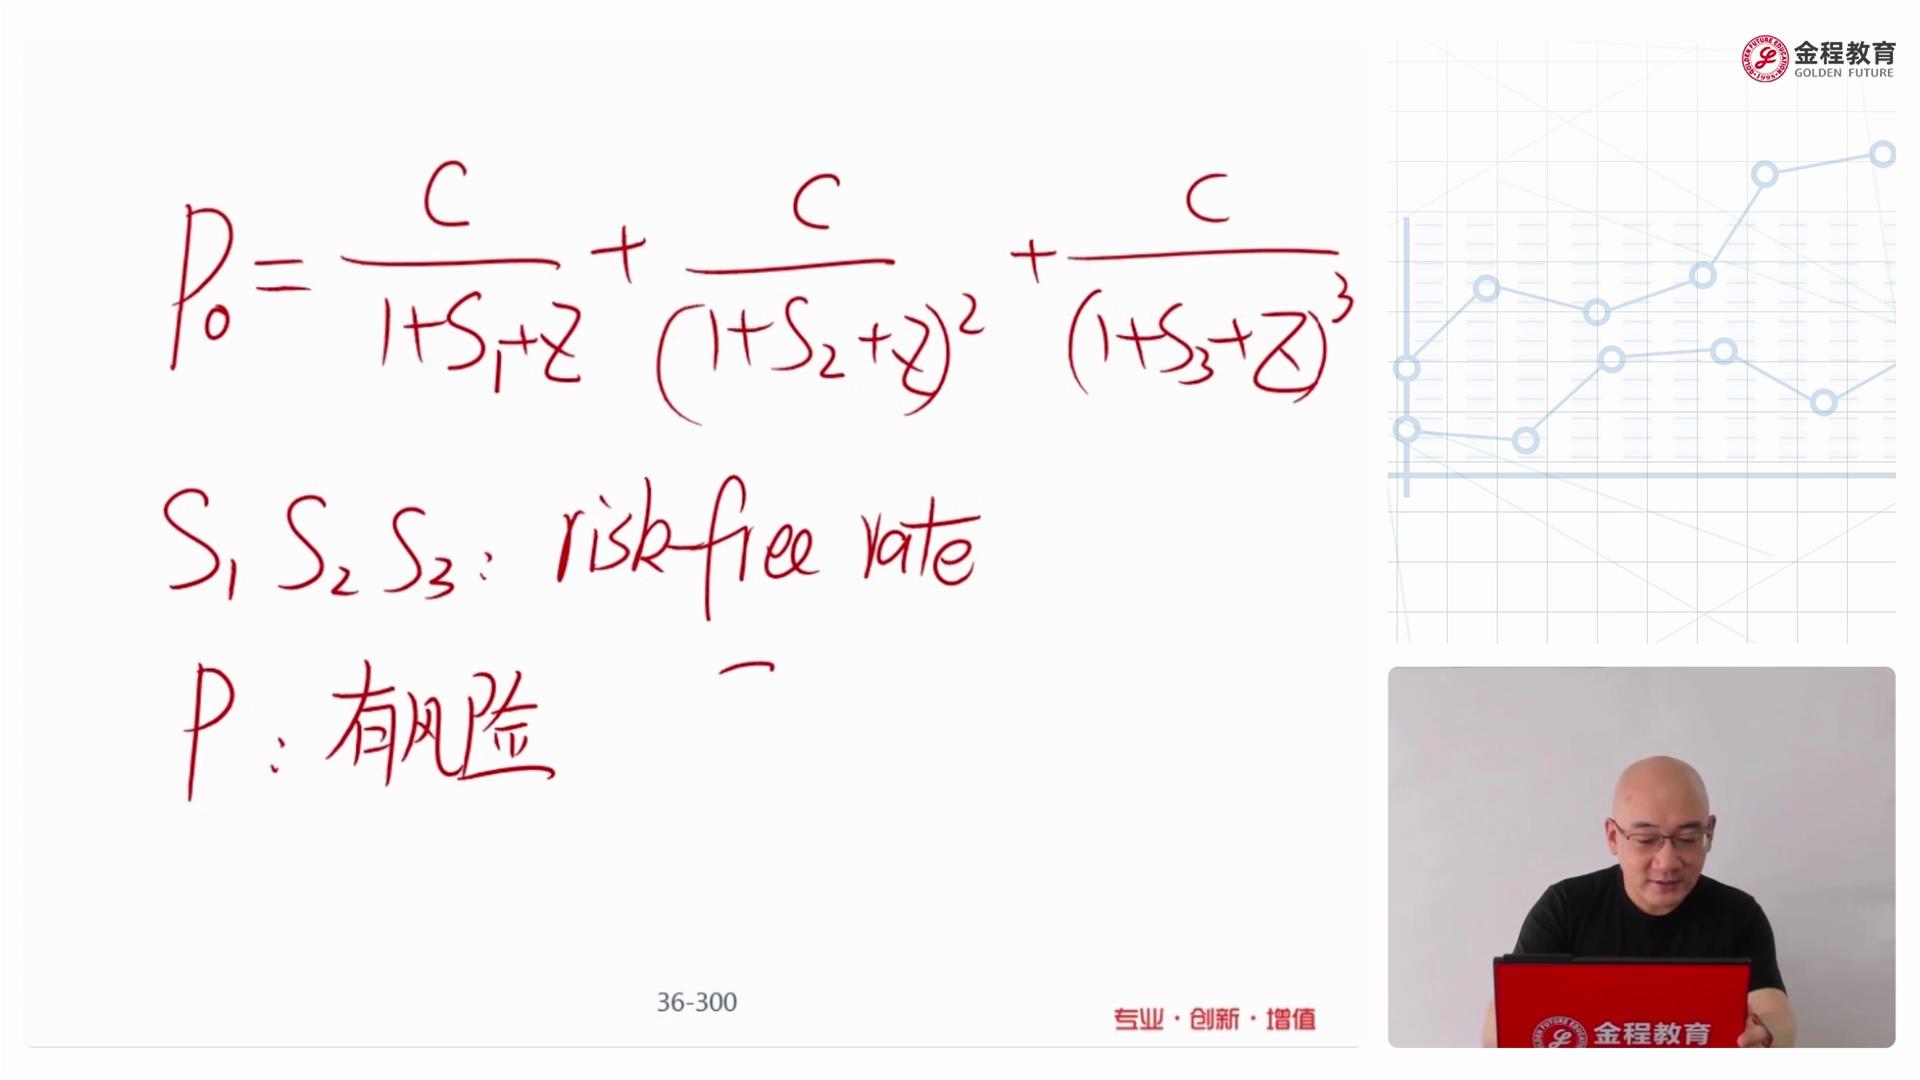 金程教育
GOLDEN FUTURE
P₀ = C/(1+S₁+Z) + C/(1+S₂+Z)² + C/(1+S₃+Z)³
S₁ S₂ S₃: risk-free rate
P: 有风险
36-300
专业·创新·增值
金程教育